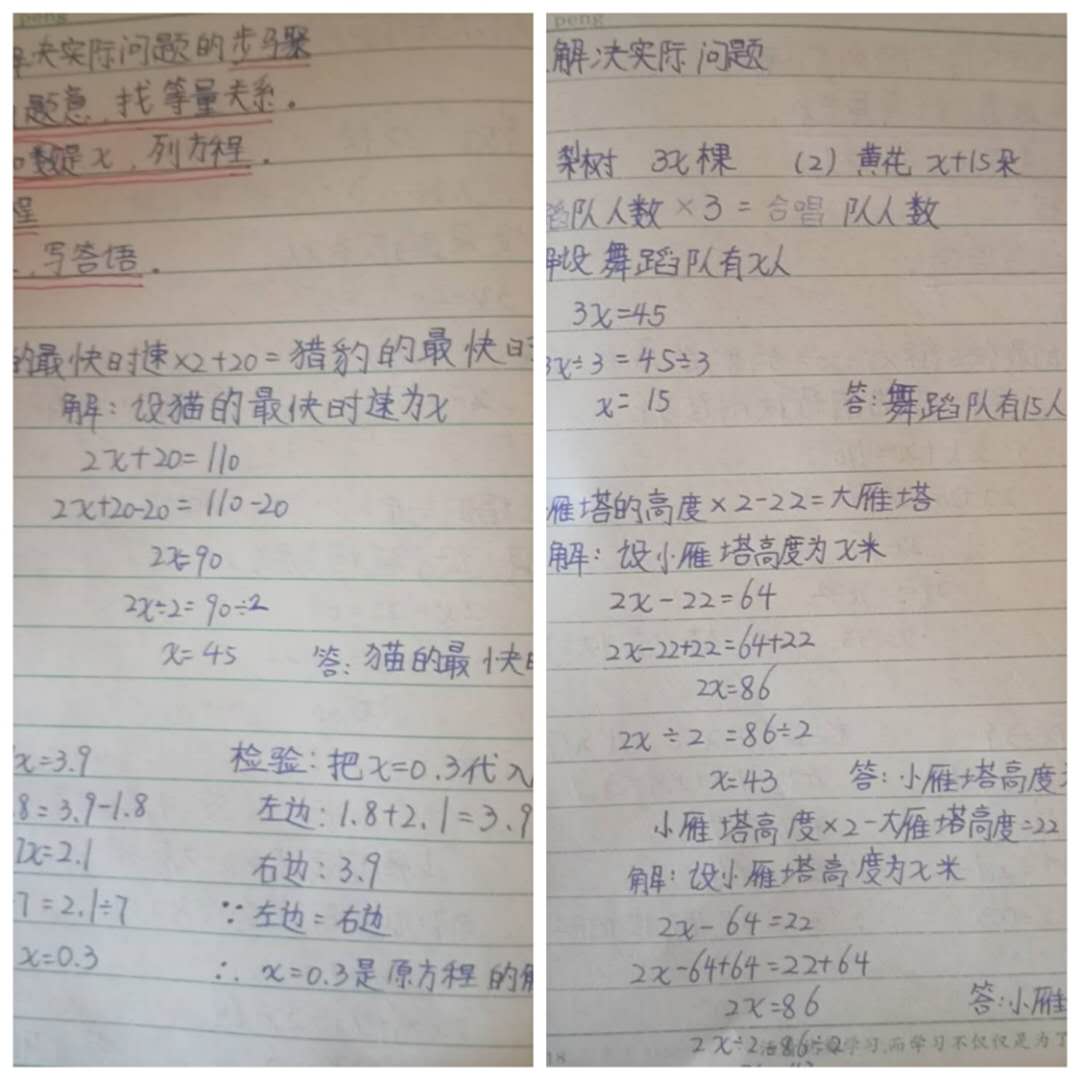 peng
决实际问题的步骤
题意,找等量关系。
数是x,列方程.
程
,写答语.
的最快时速×2+20=猎豹的最快时
解:设猫的最快时速为x
2x+20=110
2x+20-20=110-20
2x=90
2x÷2=90÷2
x=45 答:猫的最快
x=3.9 检验:把x=0.3代入
8=3.9-1.8 左边:1.8+2.1=3.9
7x=2.1 右边:3.9
7=2.1÷7 ∵左边=右边
x=0.3 ∴x=0.3是原方程的
peng
解决实际问题
梨树 3x棵 (2) 黄花 x+15朵
蹈队人数×3=合唱队人数
解设舞蹈队有x人
3x=45
3x÷3=45÷3
x=15 答:舞蹈队有15人
雁塔的高度×2-22=大雁塔
解:设小雁塔高度为x米
2x-22=64
2x-22+22=64+22
2x=86
2x÷2=86÷2
x=43 答:小雁塔高度
小雁塔高度×2-大雁塔高度=22
解:设小雁塔高度为x米
2x-64=22
2x-64+64=22+64
2x=86 答:小雁
2x÷2=86÷2
学习,而学习不仅仅是为了